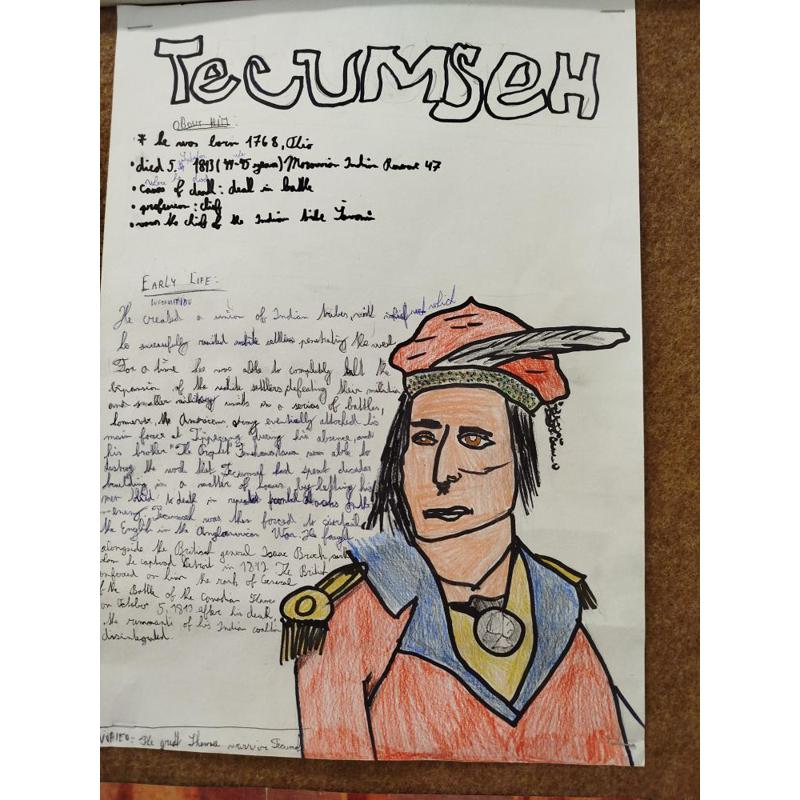 TeCUMSeH
About Him:
* he was born 1768, Ohio
• died 5. 1813 (44-45 years) Moravian Indian Reserve 47
• of death: dead in battle
• profession: chief
• was the chief of the Indian tribe
EARLY LIFE:
He created a union of Indian tribes, with which
he succesfully resisted white settlers penetrating the west.
For a time he was able to completly halt the
Expansion of the white settlers, defeating their militia
and smaller military units in a series of battles,
the American army eventually attacked his
main force at during his absence, and
his brother "The Prophet was able to
destroy the work that Tecumseh had spent decades
building in a matter of hours, by letting his
men to death in repeated frontal attacks on the
enemy. Tecumseh was then forced to
the English in the War. He fought
alongside the British general Isaac Brock,
he captured Detroit in The British
conferred on him the rank of General
the Battle of the Canadian
on October 5, 1813 after his death,
the remnants of his Indian coalition
disintegrated.
The great warrior